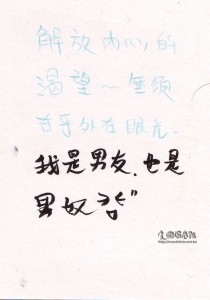 解放內心的
渴望～無須
在乎外在眼光.
我是男友.也是
男奴